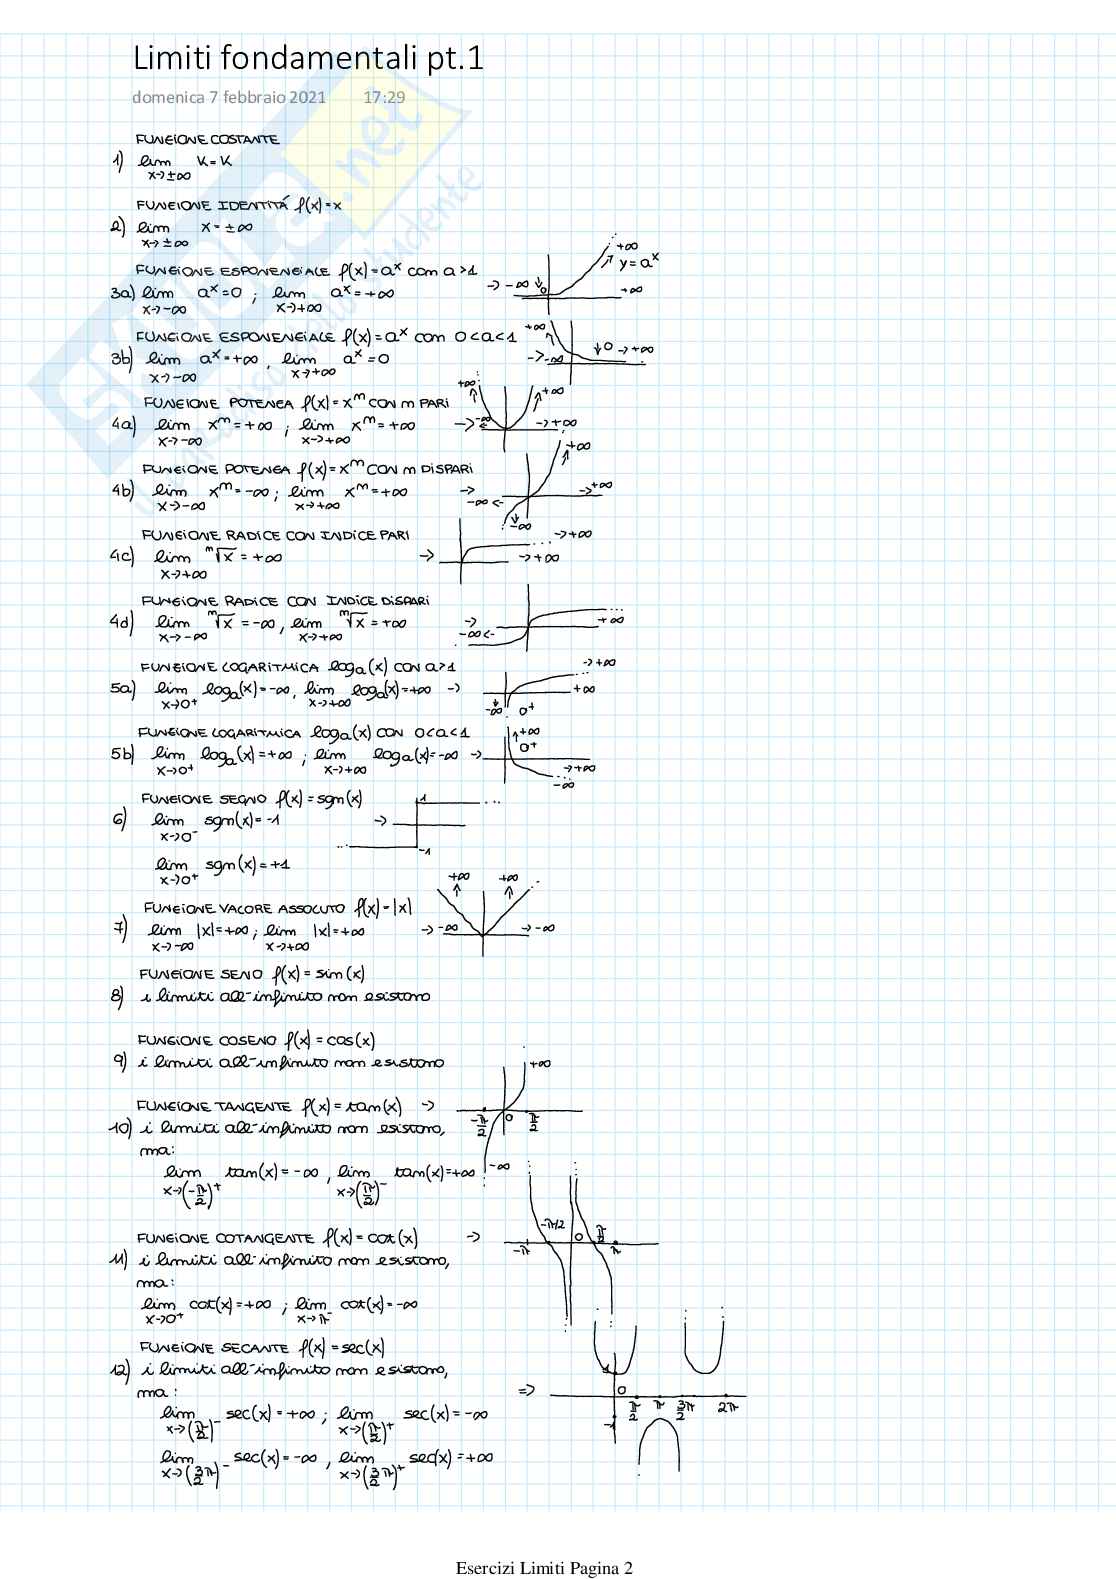 Limiti fondamentali pt.1
domenica 7 febbraio 2021 17:29
FUNZIONE COSTANTE
1) lim K = K
x→±∞
FUNZIONE IDENTITÁ f(x)=x
2) lim x = ±∞
x→±∞
FUNZIONE ESPONENZIALE f(x)=aˣ con a>1
3a) lim aˣ=0 ; lim aˣ=+∞
x→-∞ x→+∞
→ -∞ ↓0 +∞ y=aˣ +∞
FUNZIONE ESPONENZIALE f(x)=aˣ con 0<a<1
3b) lim aˣ=+∞, lim aˣ=0
x→-∞ x→+∞
+∞ →-∞ ↓0 →+∞
FUNZIONE POTENZA f(x)=xⁿ CON n PARI
4a) lim xⁿ=+∞ ; lim xⁿ=+∞
x→-∞ x→+∞
+∞ +∞ → -∞ →+∞
FUNZIONE POTENZA f(x)=xⁿ CON n DISPARI
4b) lim xⁿ=-∞ ; lim xⁿ=+∞
x→-∞ x→+∞
+∞ → -∞← →+∞ ↓-∞
FUNZIONE RADICE CON INDICE PARI
4c) lim ⁿ√x = +∞ →
x→+∞
→+∞ →+∞
FUNZIONE RADICE CON INDICE DISPARI
4d) lim ⁿ√x = -∞, lim ⁿ√x = +∞ →
x→-∞ x→+∞
-∞← +∞
FUNZIONE LOGARITMICA logₐ(x) CON a>1
5a) lim logₐ(x)=-∞, lim logₐ(x)=+∞ →
x→0⁺ x→+∞
→+∞ +∞ -∞ 0⁺
FUNZIONE LOGARITMICA logₐ(x) CON 0<a<1
5b) lim logₐ(x)=+∞ ; lim logₐ(x)=-∞ →
x→0⁺ x→+∞
↑+∞ 0⁺ →+∞ -∞
FUNZIONE SEGNO f(x)=sgn(x)
6) lim sgn(x)=-1 →
x→0⁻
1 -1
lim sgn(x)=+1
x→0⁺
FUNZIONE VALORE ASSOLUTO f(x)=|x|
7) lim |x|=+∞ ; lim |x|=+∞
x→-∞ x→+∞
+∞ +∞ → -∞ →-∞
FUNZIONE SENO f(x)=sin(x)
8) i limiti all'infinito non esistono
FUNZIONE COSENO f(x)=cos(x)
9) i limiti all'infinito non esistono
FUNZIONE TANGENTE f(x)=tan(x) →
10) i limiti all'infinito non esistono,
ma:
lim tan(x)=-∞, lim tan(x)=+∞
x→(-π/2)⁺ x→(π/2)⁻
+∞ -π/2 0 π/2 -∞
FUNZIONE COTANGENTE f(x)=cot(x) →
11) i limiti all'infinito non esistono,
ma:
lim cot(x)=+∞ ; lim cot(x)=-∞
x→0⁺ x→π⁻
-π -π/2 0 π/2 π
FUNZIONE SECANTE f(x)=sec(x)
12) i limiti all'infinito non esistono,
ma: ⇒
lim sec(x)=+∞ ; lim sec(x)=-∞
x→(π/2)⁻ x→(π/2)⁺
lim sec(x)=-∞, lim sec(x)=+∞
x→(3/2π)⁻ x→(3/2π)⁺
1 0 π/2 π 3/2π 2π -1
Esercizi Limiti Pagina 2